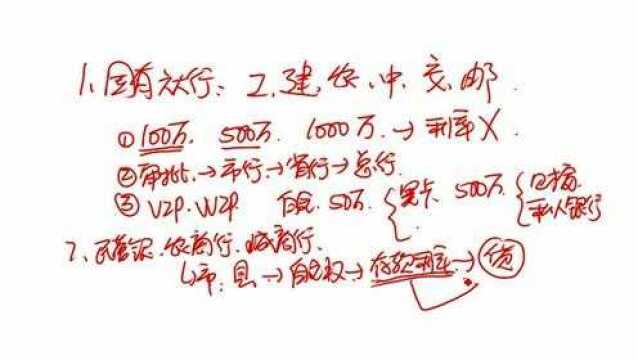 1、国有六行：工.建.农.中.交.邮.
①100万.500万.1000万.→利率X.
②审批.→市行→省行→总行.
③VIP.WIP 白免.50万.{黑卡 500万{
私人银行
2、民营银.农商行.城商行.
↳市.县→自主权→存款利率→贷